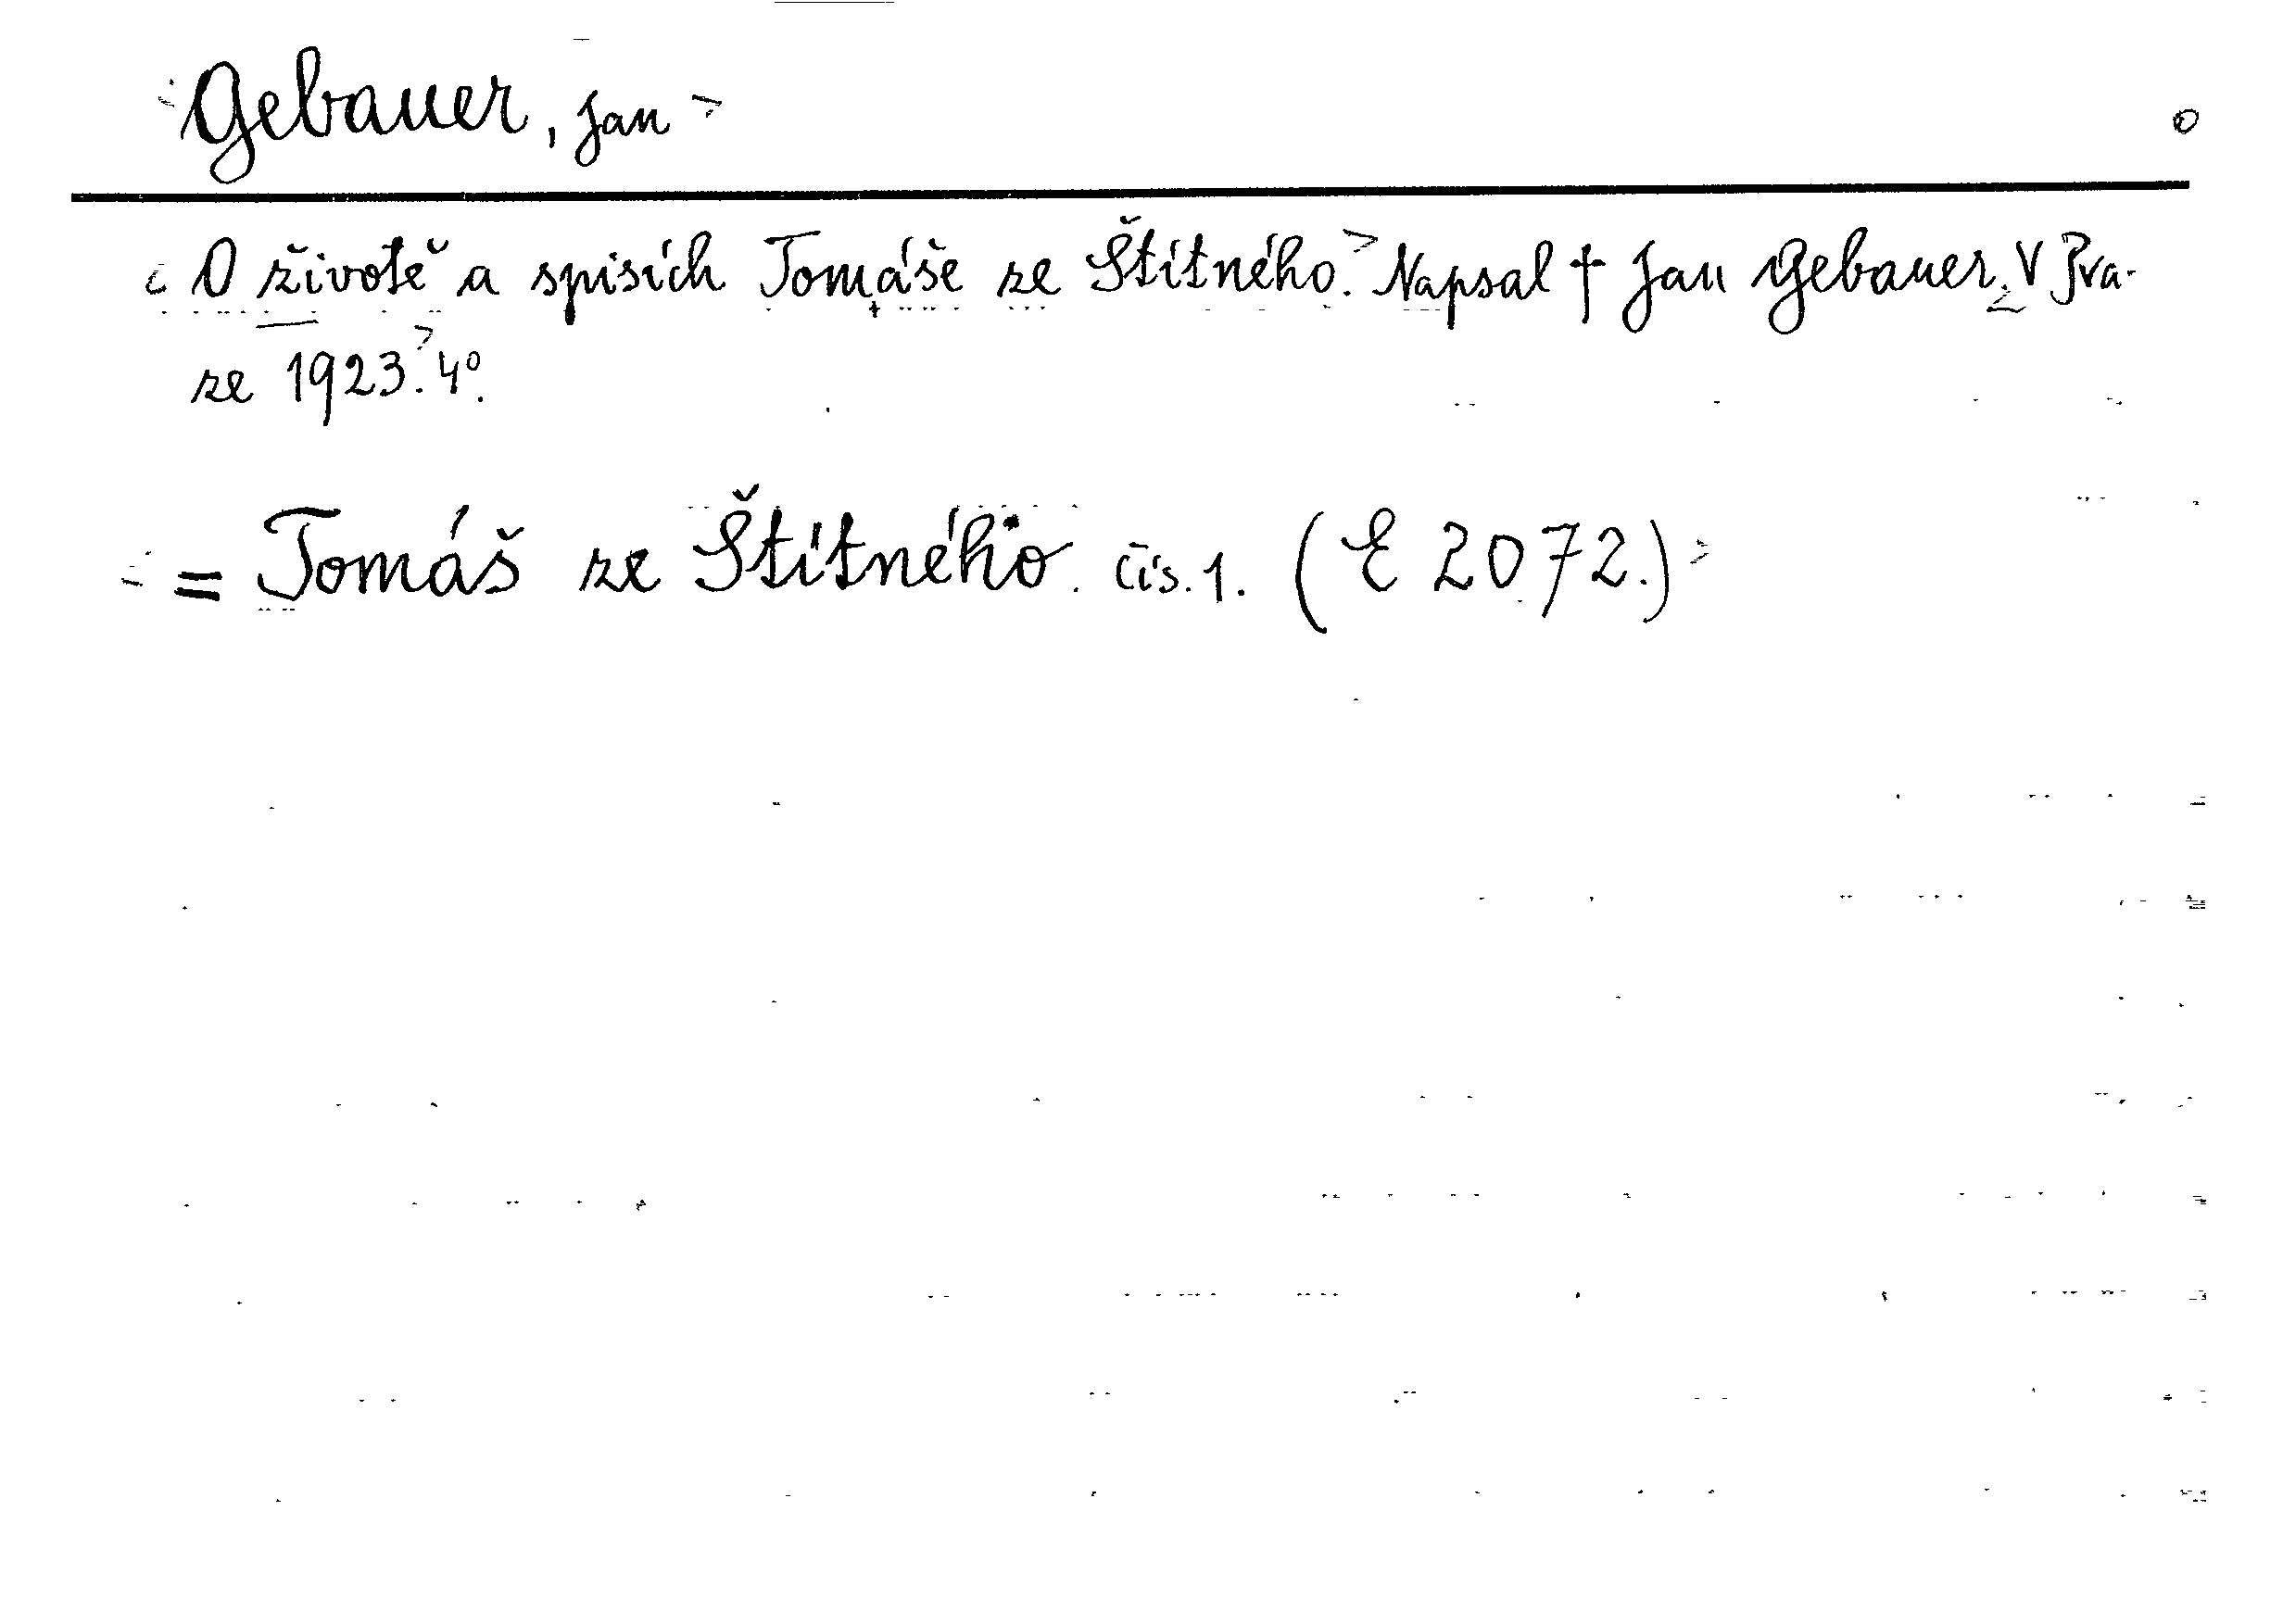 Gebauer, Jan
O životě a spisích Tomáše ze Štítného. Napsal † Jan Gebauer. V Pra-
ze 1923. 4º.
= Tomáš ze Štítného. čís. 1. (E 2072.)